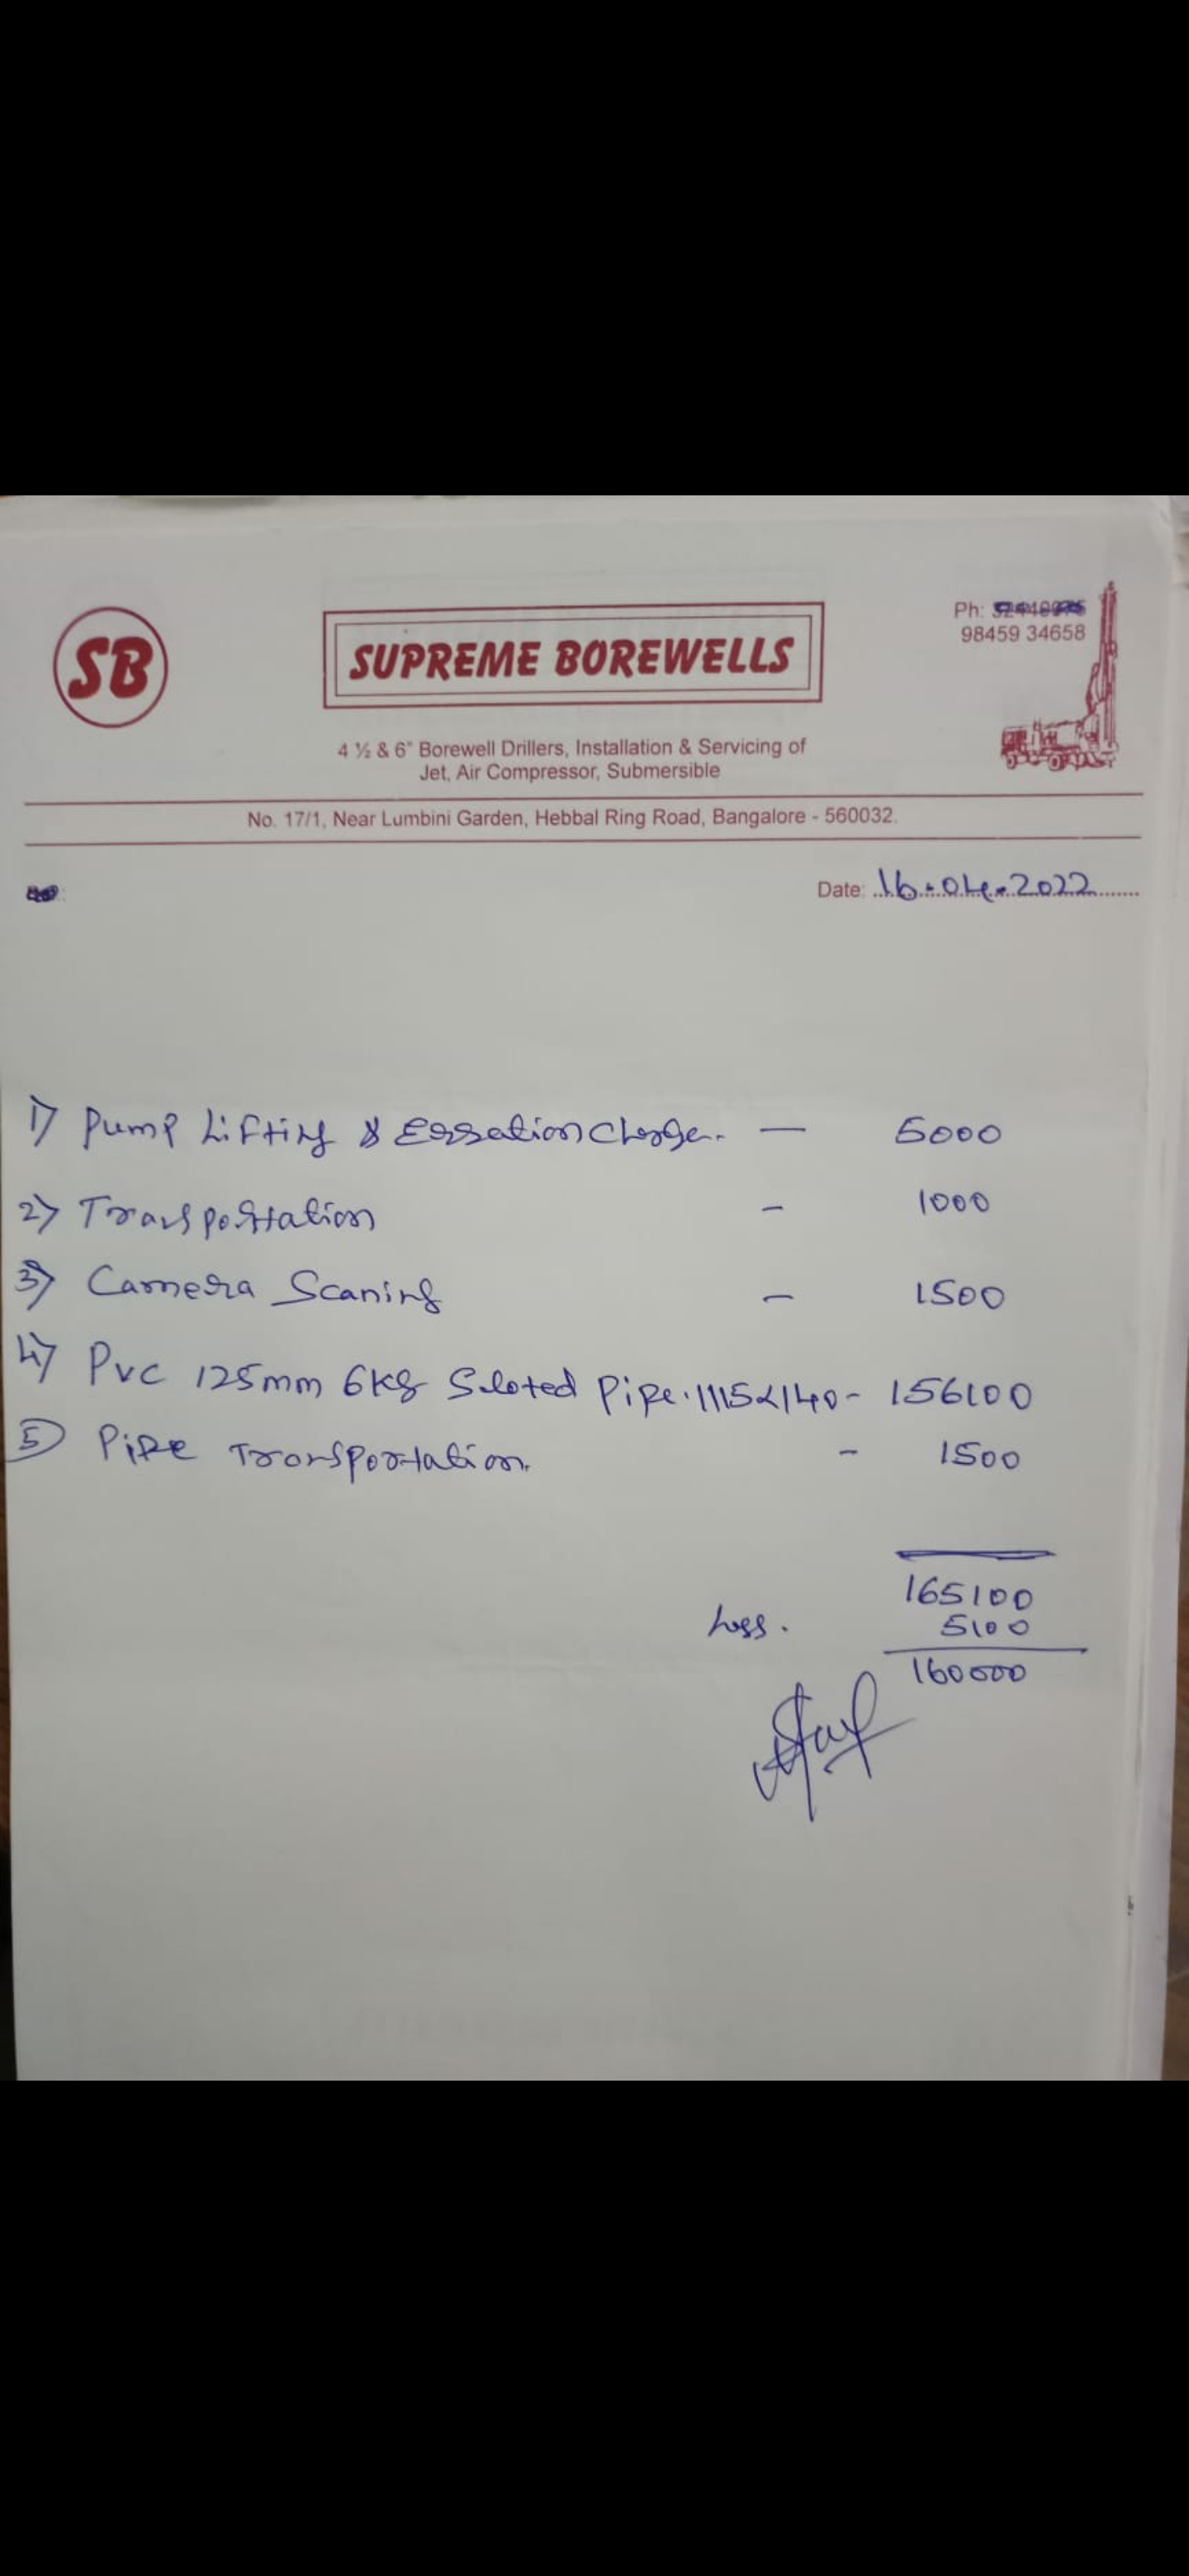 SB
SUPREME BOREWELLS
Ph:
98459 34658
4 ½ & 6" Borewell Drillers, Installation & Servicing of
Jet, Air Compressor, Submersible
No. 17/1, Near Lumbini Garden, Hebbal Ring Road, Bangalore - 560032.
Date: 16-04-2022
1) Pump Lifting & Erration Charge. — 5000
2) Transportation - 1000
3) Camera Scaning - 1500
4) Pvc 125mm 6kg Sloted Pipe. 1115x140 - 156100
5) Pipe Transportation. - 1500
165100
Less. 5100
160000